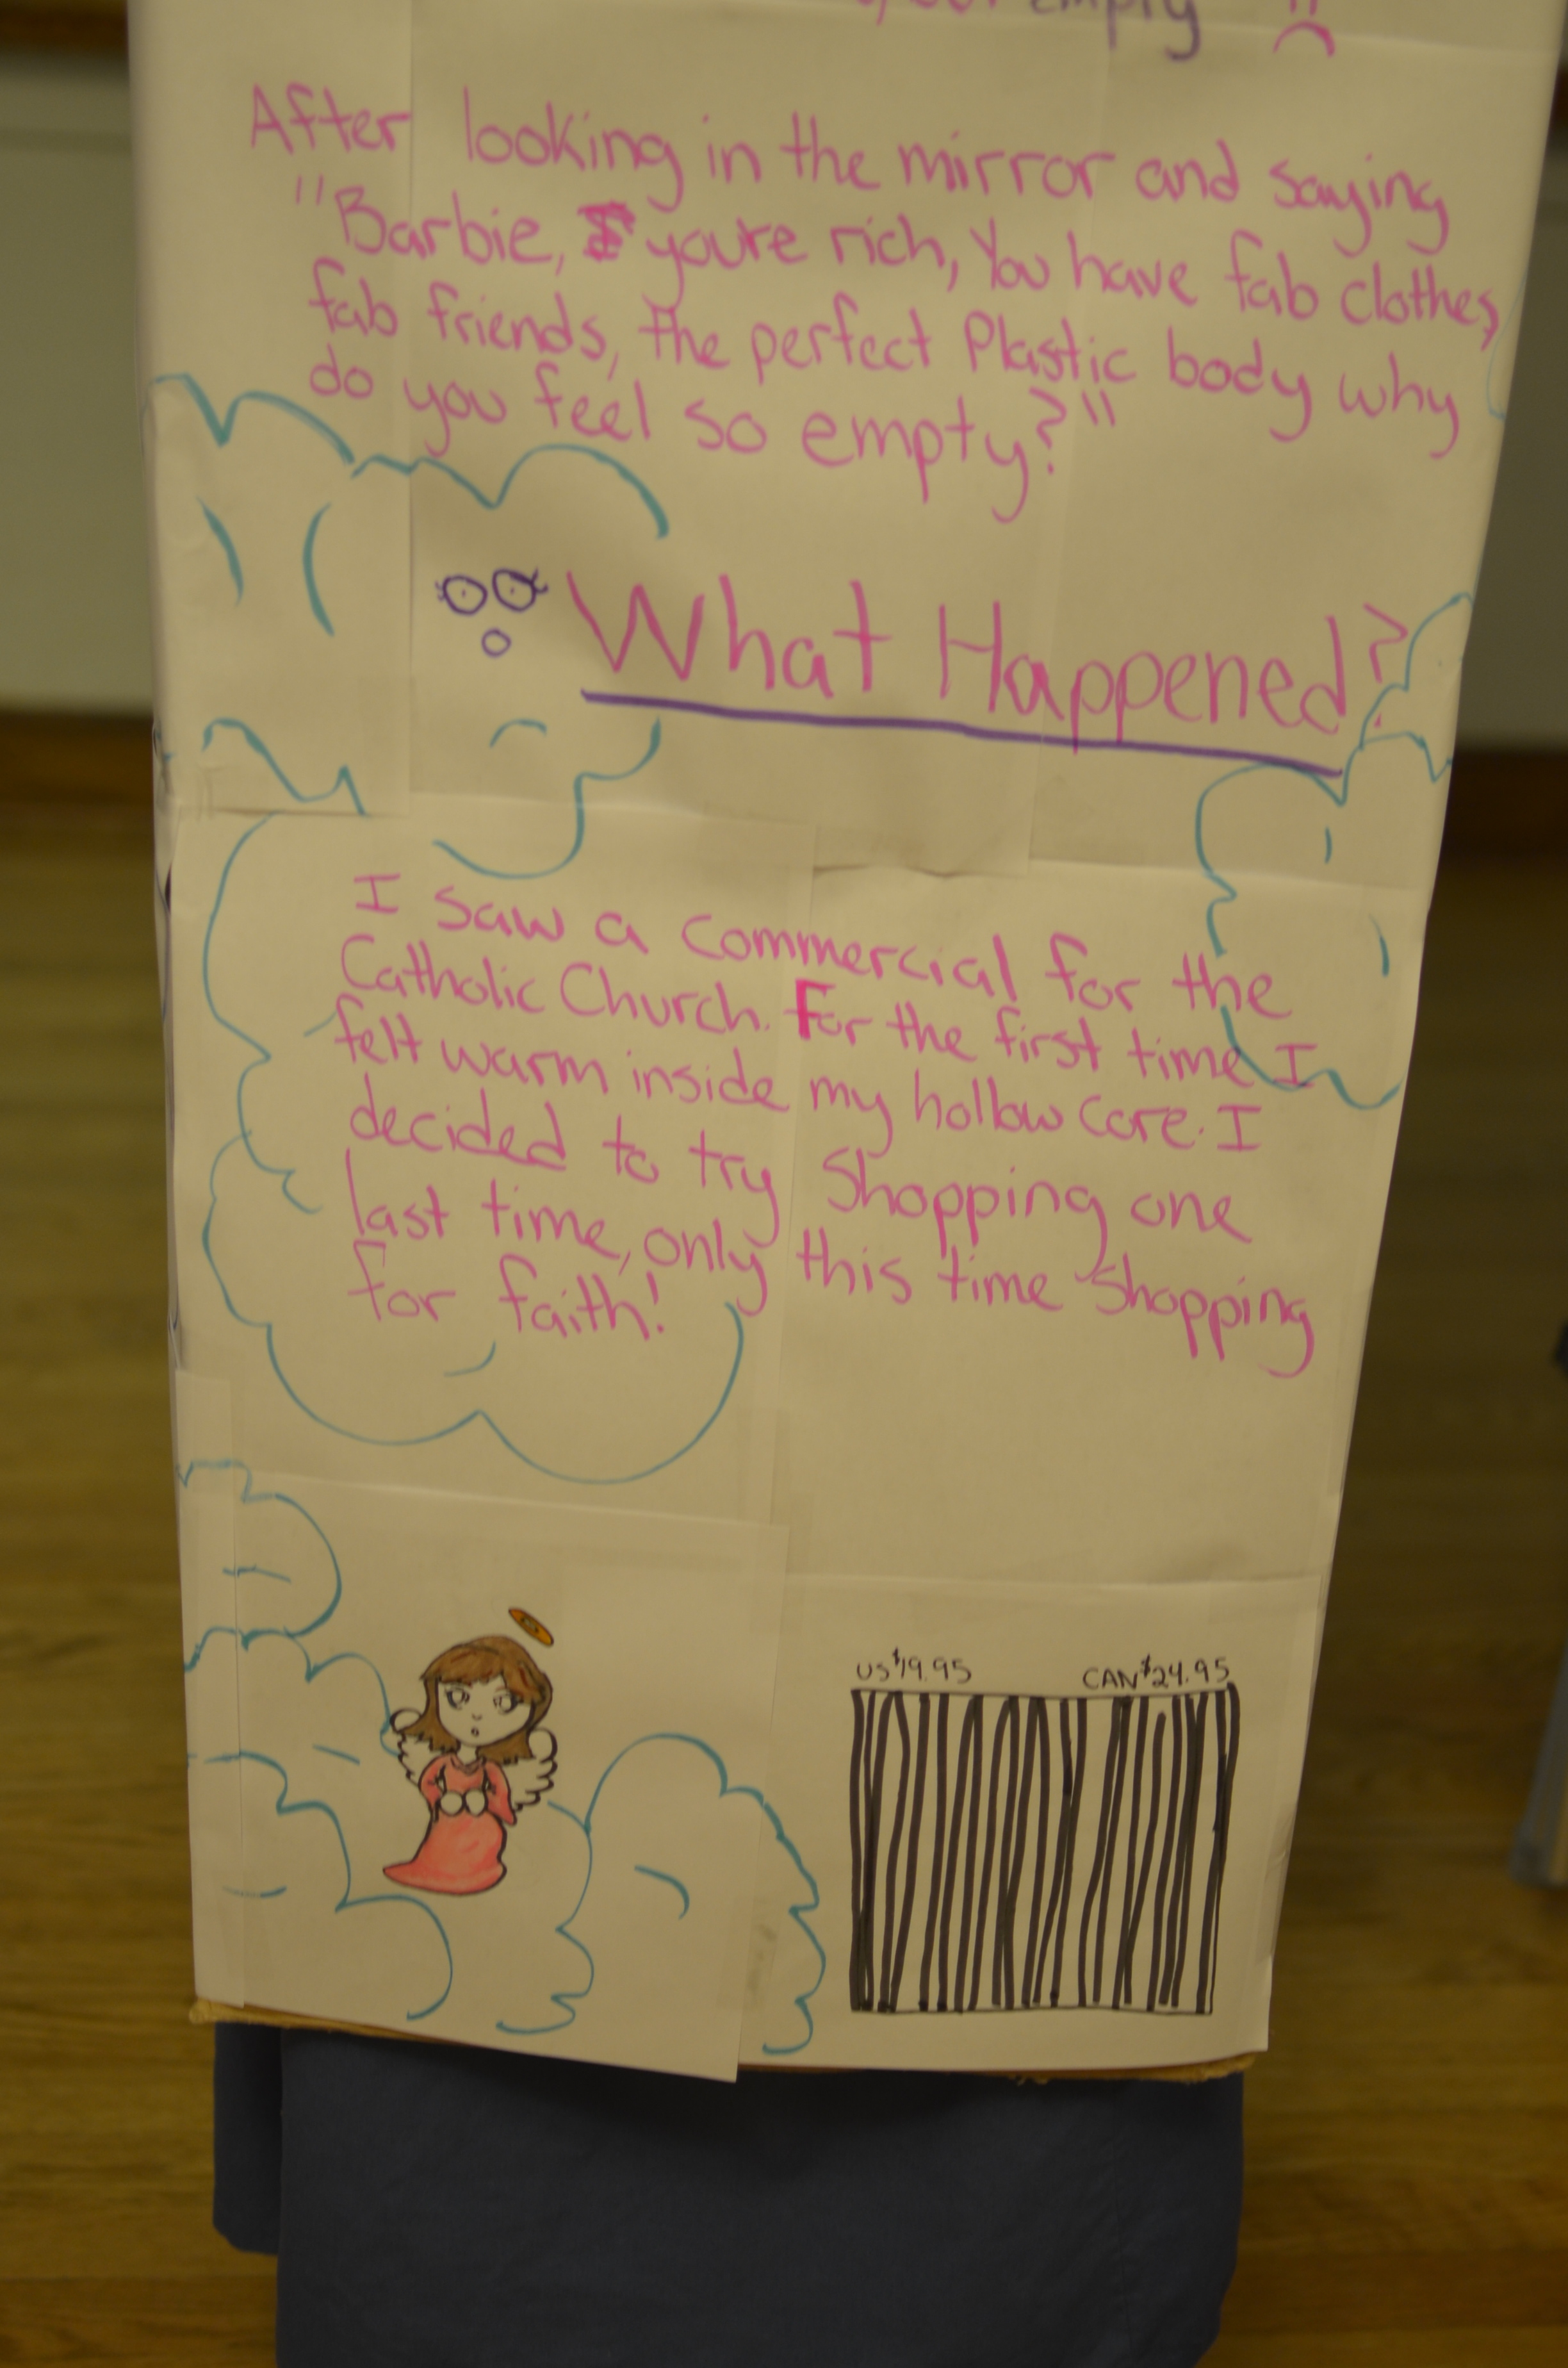 empty
After looking in the mirror and saying
"Barbie, you're rich, You have fab clothes,
fab friends, the perfect Plastic body why
do you feel so empty?"
What Happened?
I saw a commercial for the
Catholic Church. For the first time I
felt warm inside my hollow core. I
decided to try Shopping one
last time, only this time shopping
for faith!
US $19.95 CAN $24.95